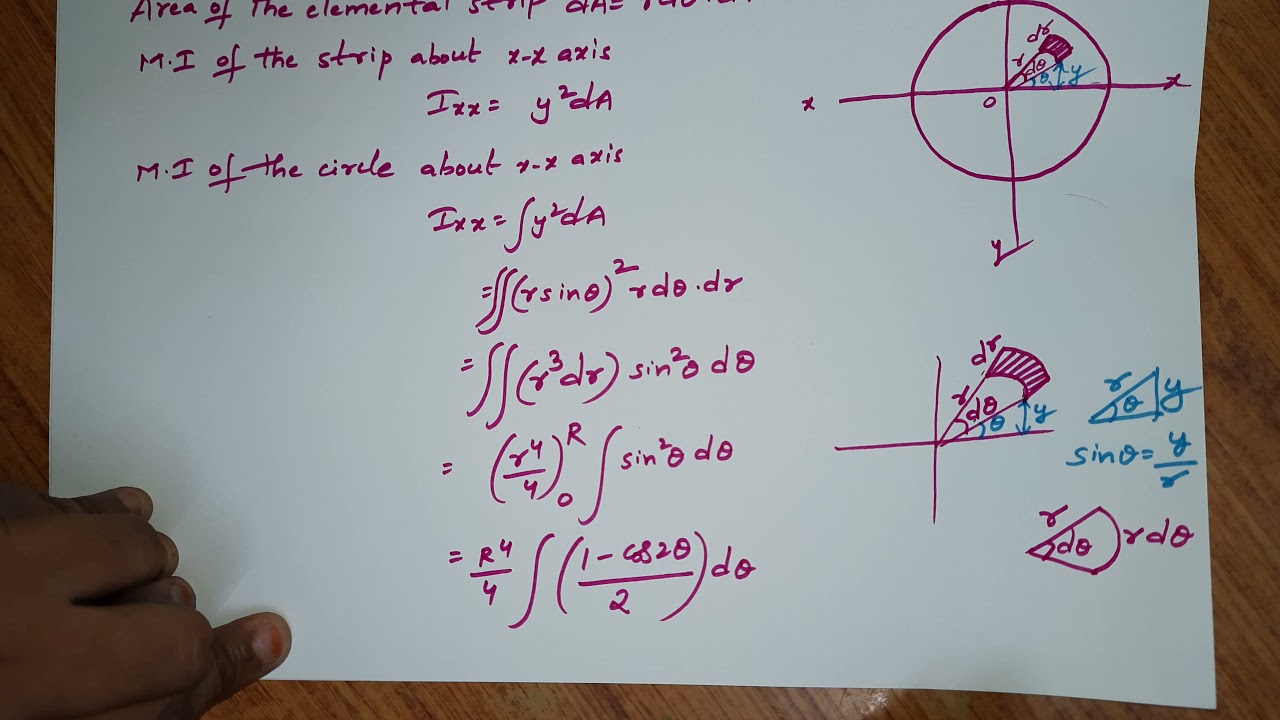 Area of the elemental strip dA= rdθ.dr
M.I of the strip about x-x axis
Ixx= y²dA
M.I of the circle about x-x axis
Ixx=∫y²dA
=∫∫(rsinθ)² rdθ.dr
=∫∫(r³dr) sin²θ dθ
= (r⁴/4)₀ᴿ ∫sin²θ dθ
= R⁴/4 ∫(1-cos2θ/2)dθ
dr
r
dθ
θ
y
x
x
O
y
dr
r
dθ
θ
y
r
θ
y
sinθ=y/r
r
dθ
rdθ